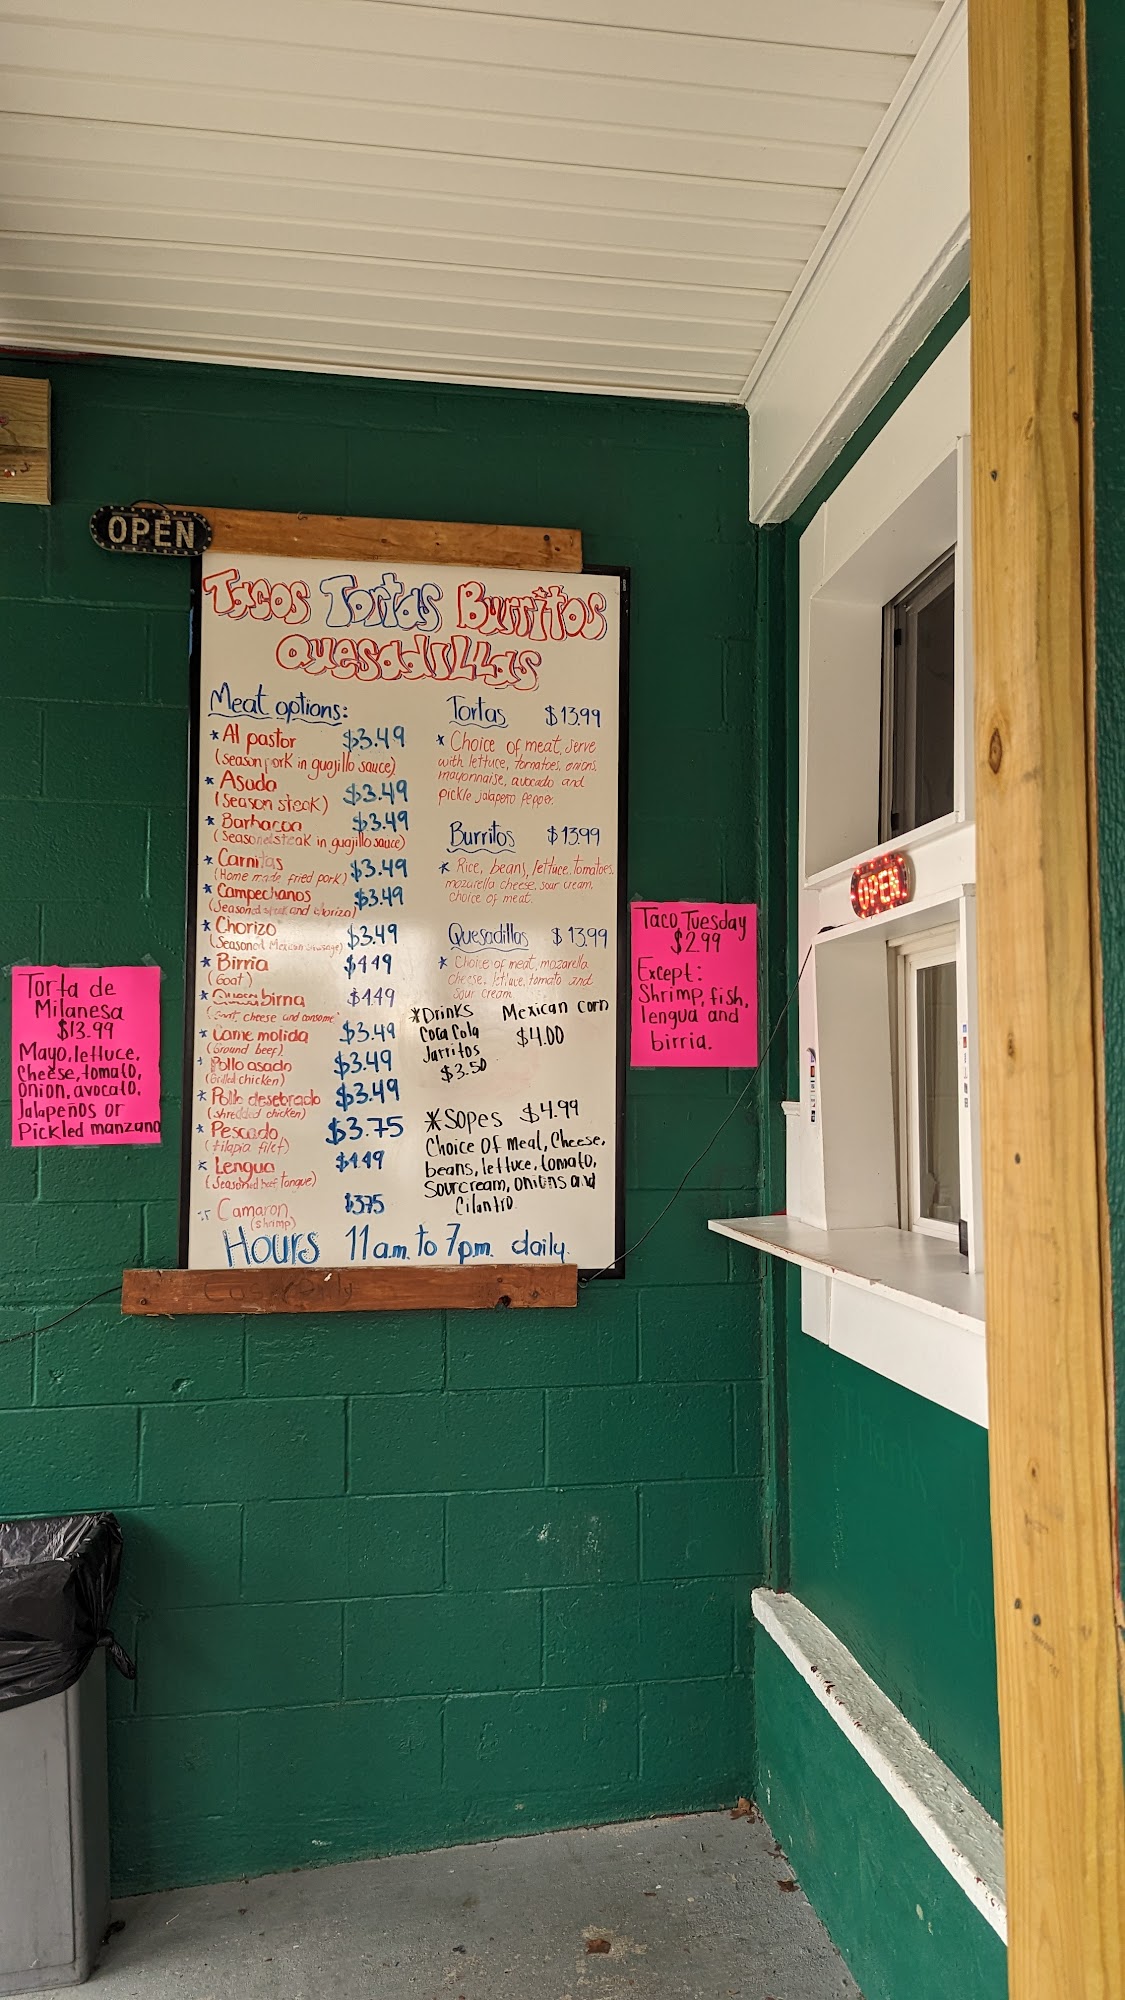 OPEN
Tacos Tortas Burritos
Quesadillas
Meat options:
* Al pastor $3.49
(season pork in guajillo sauce)
* Asada $3.49
(Season steak)
* Barbacoa $3.49
(Seasoned steak in guajillo sauce)
* Carnitas $3.49
(Home made fried pork)
* Campechanos $3.49
(Seasoned steak and chorizo)
* Chorizo $3.49
(Seasoned Mexican sausage)
* Birria $4.49
(Goat)
* Quesabirria $4.49
(Goat, cheese and consome)
* Carne molida $3.49
(Ground beef)
* Pollo asado $3.49
(Grilled chicken)
* Pollo desebrado $3.49
(shredded chicken)
* Pescado $3.75
(tilapia filet)
* Lengua $4.49
(Seasoned beef tongue)
Camaron $3.75
(shrimp)
Tortas $13.99
* Choice of meat, serve
with lettuce, tomatoes, onions,
mayonnaise, avocado and
pickle jalapeño pepper.
Burritos $13.99
* Rice, beans, lettuce, tomatoes,
mozarella cheese, sour cream,
choice of meat.
Quesadillas $13.99
* Choice of meat, mozarella
cheese, lettuce, tomato and
sour cream
*Drinks
Coca Cola
Jarritos
$3.50
Mexican corn
$4.00
*Sopes $4.99
Choice of meat, Cheese,
beans, lettuce, tomato,
Sourcream, onions and
Cilantro.
Hours 11am. to 7pm. daily.
Cash only
Torta de
Milanesa
$13.99
Mayo, lettuce,
Cheese, tomato,
onion, avocato,
Jalapeños or
Pickled manzano
Taco Tuesday
$2.99
Except:
Shrimp, fish,
lengua and
birria.
OPEN